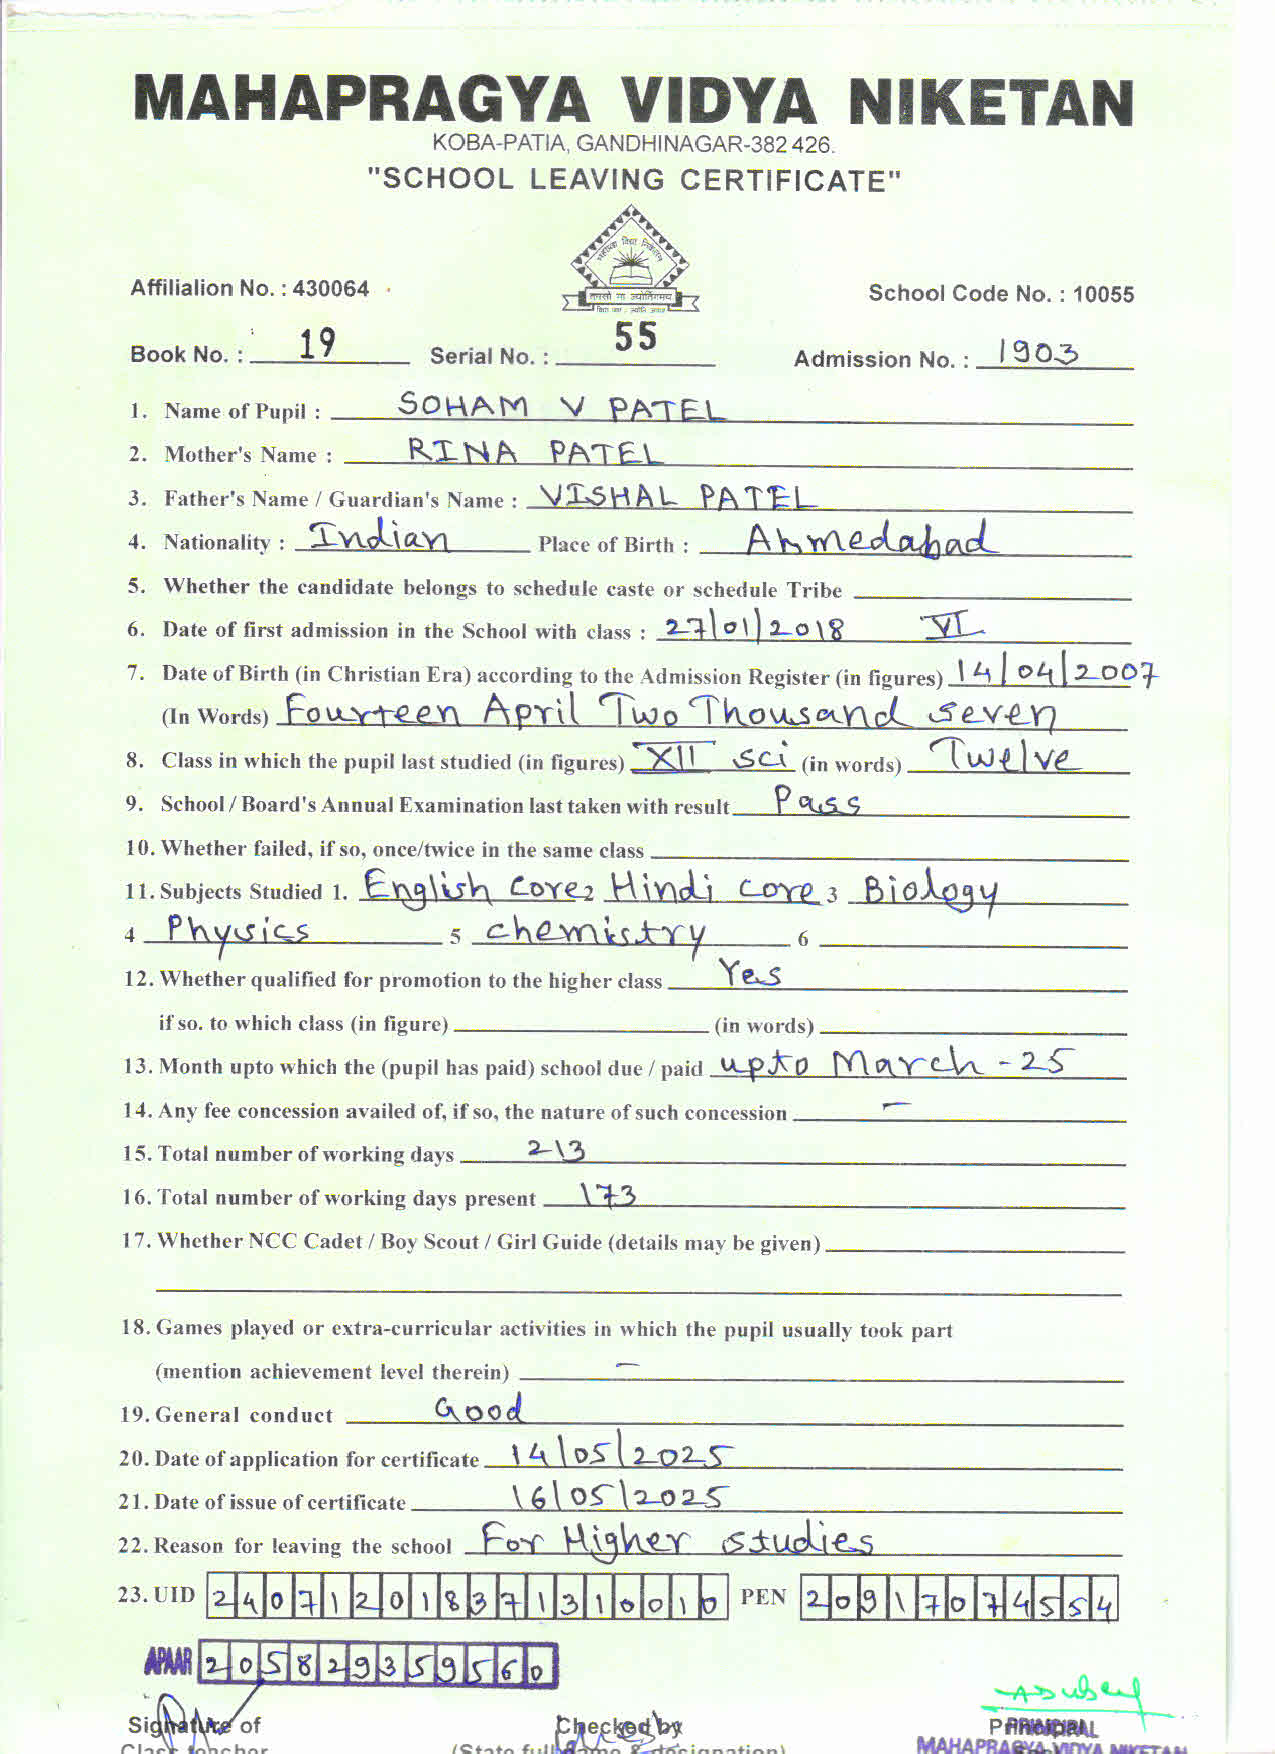 MAHAPRAGYA VIDYA NIKETAN
KOBA-PATIA, GANDHINAGAR-382 426.
"SCHOOL LEAVING CERTIFICATE"
महाप्रज्ञ विद्या निकेतन
तमसो मा ज्योतिर्गमय
Affilialion No. : 430064
School Code No. : 10055
Book No. : 19 Serial No. : 55 Admission No. : 1903
1. Name of Pupil : SOHAM V PATEL
2. Mother's Name : RINA PATEL
3. Father's Name / Guardian's Name : VISHAL PATEL
4. Nationality : Indian Place of Birth : Ahmedabad
5. Whether the candidate belongs to schedule caste or schedule Tribe
6. Date of first admission in the School with class : 27/01/2018 VI
7. Date of Birth (in Christian Era) according to the Admission Register (in figures) 14/04/2007
(In Words) Fourteen April Two Thousand seven
8. Class in which the pupil last studied (in figures) XII sci (in words) Twelve
9. School / Board's Annual Examination last taken with result Pass
10. Whether failed, if so, once/twice in the same class
11. Subjects Studied 1. English core 2 Hindi core 3 Biology
4 Physics 5 chemistry 6
12. Whether qualified for promotion to the higher class Yes
if so. to which class (in figure) (in words)
13. Month upto which the (pupil has paid) school due / paid upto March - 25
14. Any fee concession availed of, if so, the nature of such concession –
15. Total number of working days 213
16. Total number of working days present 173
17. Whether NCC Cadet / Boy Scout / Girl Guide (details may be given)
18. Games played or extra-curricular activities in which the pupil usually took part
(mention achievement level therein) –
19. General conduct Good
20. Date of application for certificate 14/05/2025
21. Date of issue of certificate 16/05/2025
22. Reason for leaving the school For Higher studies
23. UID 240712018371310010 PEN 20917074554
APAAR 205829359560
Signature of Checked by Principal
PRINCIPAL
Class teacher (State full name & designation)
MAHAPRAGYA VIDYA NIKETAN